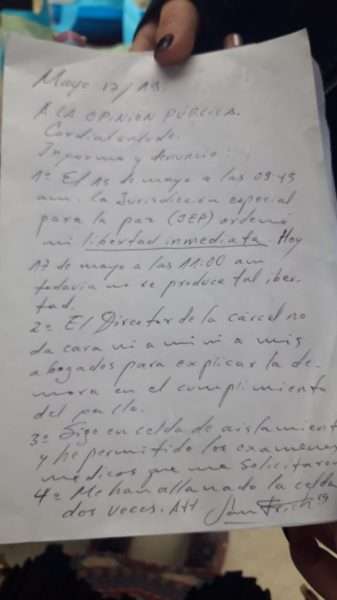 Mayo 17/19.
A LA OPINION PÚBLICA.
Cordialmente.
Informo y denuncio:
1º El 15 de mayo a las 09:45
am. la Jurisdiccion especial
para la paz (JEP) ordenó
mi libertad inmediata. Hoy
17 de mayo a las 11:00 am
todavia no se produce tal liber-
tad.
2º El Director de la cárcel no
da cara ni a mi ni a mis
abogados para explicar la de-
mora en el cumplimiento
del
3º Sigo en celda de aislamiento
y he permitido los examenes
medicos que me solicitaron
4º Me han allanado la celda
dos veces. Att